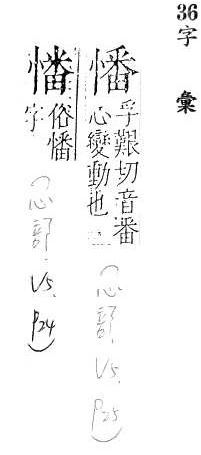 36字 彙
憣
孚艱切音番
心變動也
(心部. V5. P25)
俗憣
字
(心部. V5. P24)